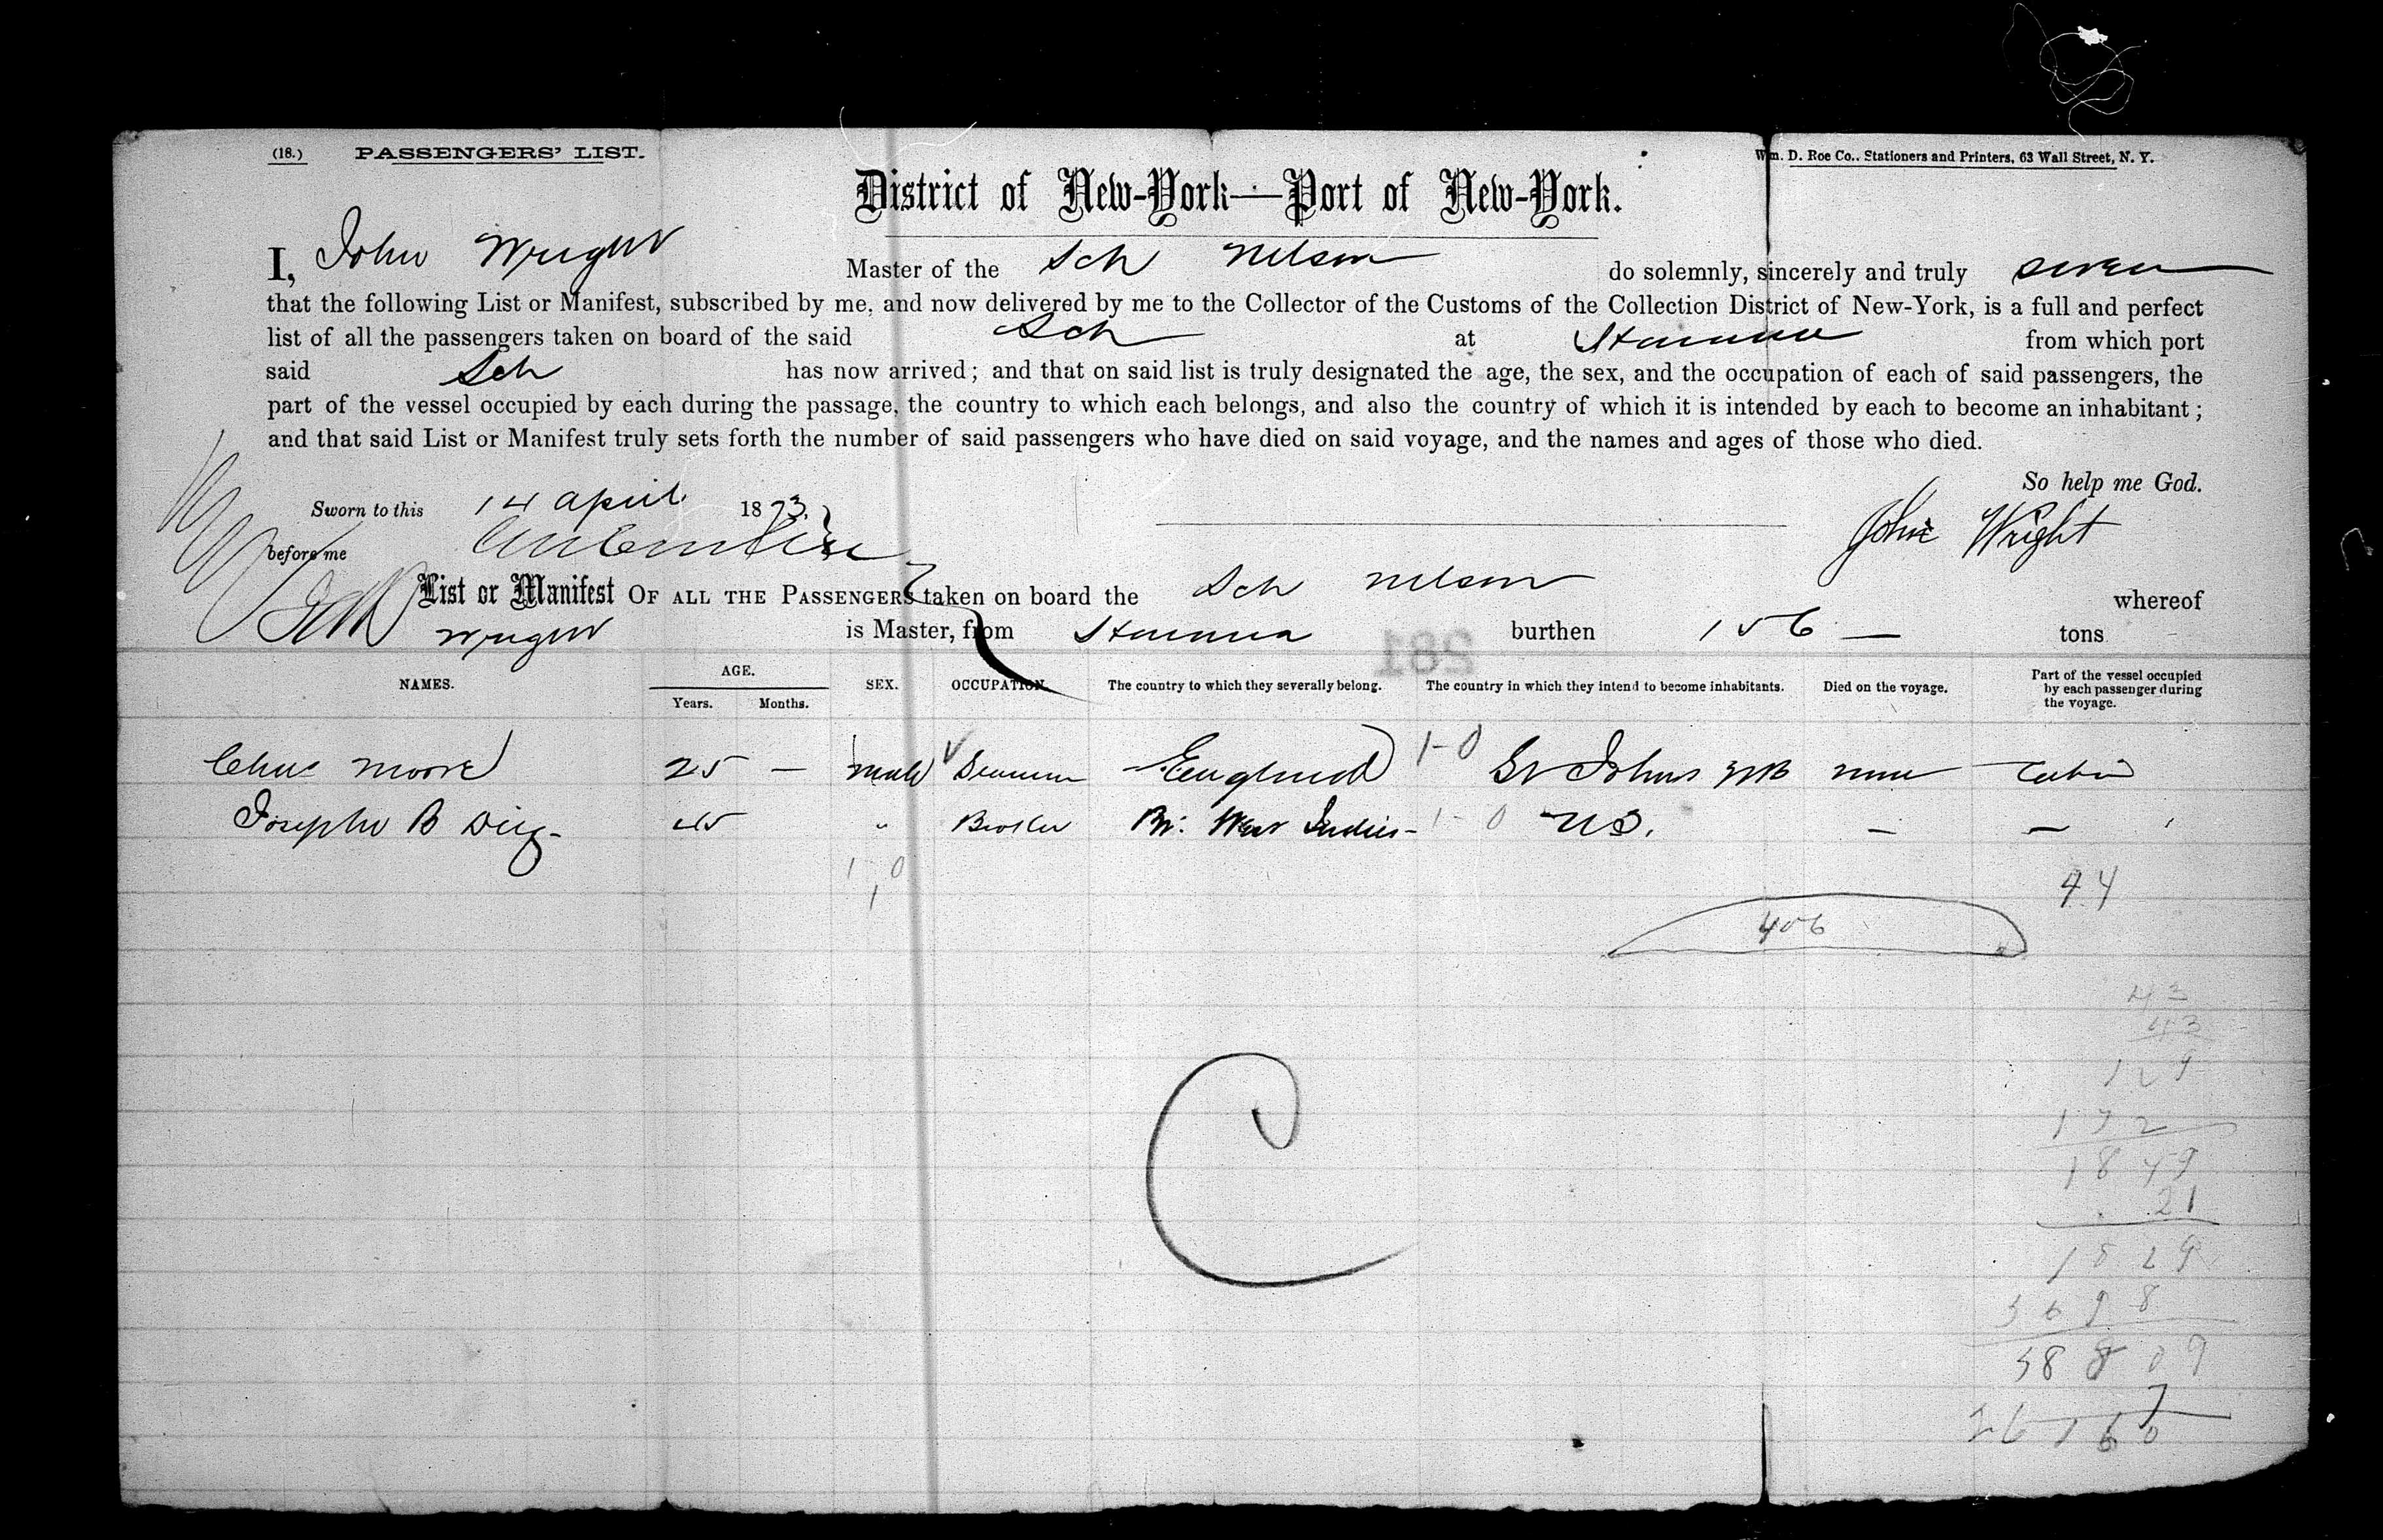 (18.) PASSENGERS' LIST. Wm. D. Roe Co., Stationers and Printers, 63 Wall Street, N. Y.
District of New-York—Port of New-York.
I, John Wright Master of the Sch Nelson do solemnly, sincerely and truly swear
that the following List or Manifest, subscribed by me, and now delivered by me to the Collector of the Customs of the Collection District of New-York, is a full and perfect
list of all the passengers taken on board of the said Sch at from which port
said Sch has now arrived; and that on said list is truly designated the age, the sex, and the occupation of each of said passengers, the
part of the vessel occupied by each during the passage, the country to which each belongs, and also the country of which it is intended by each to become an inhabitant;
and that said List or Manifest truly sets forth the number of said passengers who have died on said voyage, and the names and ages of those who died.
So help me God.
Sworn to this 14 April 1873.
before me John Wright
List or Manifest OF ALL THE PASSENGERS taken on board the Sch Nelson whereof
Wright is Master, from burthen 156 — tons
281
NAMES. AGE. Years. Months. SEX. OCCUPATION. The country to which they severally belong. The country in which they intend to become inhabitants. Died on the voyage. Part of the vessel occupied by each passenger during the voyage.
Chas Moore 25 — male Seaman England 1-0 St Johns NB none Cabin
Joseph B 45 " Broker Br: West Indies - 1-0 U S. — —
1 0
1
44
406
43
43
129
172
1849
21
1829
3698
38809
7